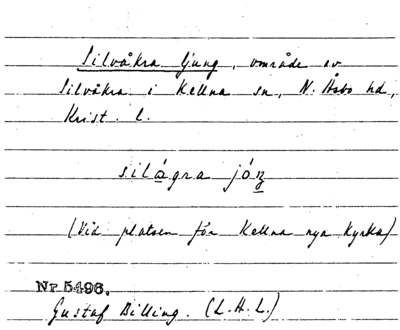 Silvåkra ljung, område av
Silvåkra i Källna sn, N. Åsbo hd,
Krist. l.
silágra jóŋ
(Vid platsen för Källna nya kyrka)
Nr 5496.
Gustaf Billing. (L.H.L.)